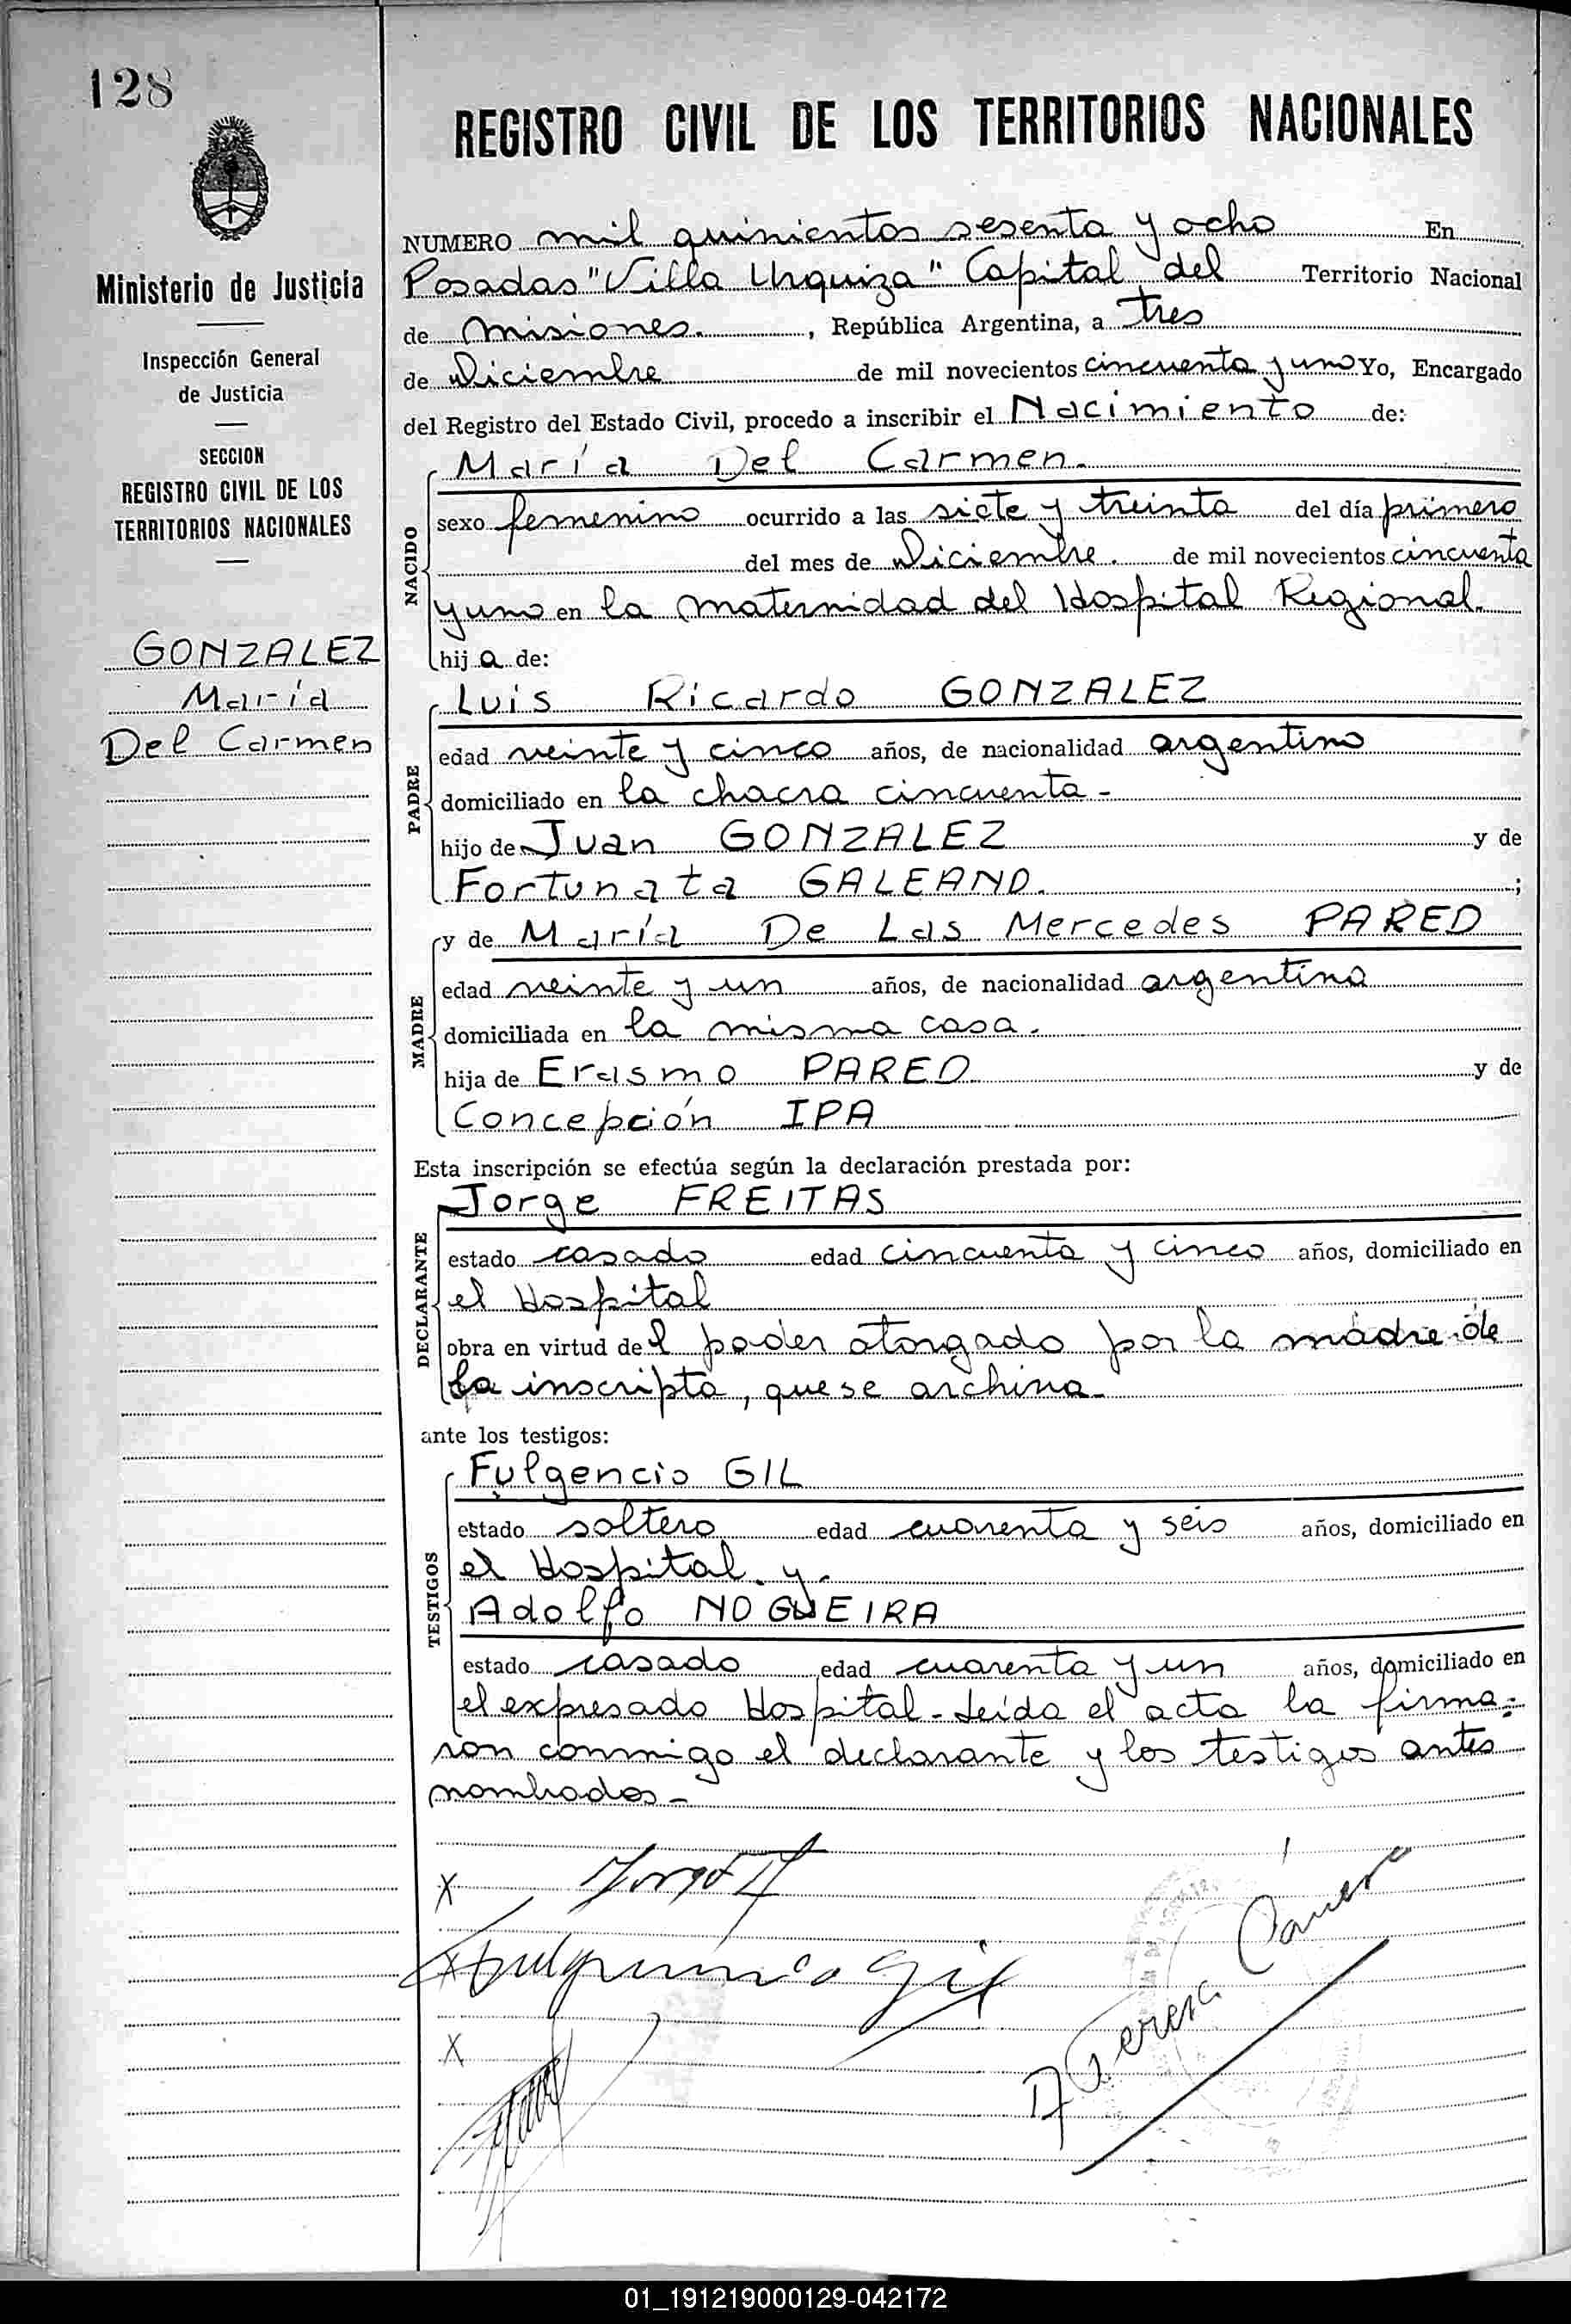 128
REGISTRO CIVIL DE LOS TERRITORIOS NACIONALES
Ministerio de Justicia
Inspección General
de Justicia
SECCION
REGISTRO CIVIL DE LOS
TERRITORIOS NACIONALES
GONZALEZ
María
Del Carmen
NUMERO mil quinientos sesenta y ocho En
Posadas "Villa Urquiza" Capital del Territorio Nacional
de Misiones. , República Argentina, a tres
de Diciembre de mil novecientos cincuenta y uno Yo, Encargado
del Registro del Estado Civil, procedo a inscribir el Nacimiento de:
NACIDO
María Del Carmen.
sexo femenino ocurrido a las siete y treinta del día primero
del mes de Diciembre. de mil novecientos cincuenta
y uno en la maternidad del Hospital Regional.
hij a de:
PADRE
Luis Ricardo GONZALEZ
edad veinte y cinco años, de nacionalidad argentino
domiciliado en la chacra cincuenta -
hijo de Juan GONZALEZ y de
Fortunata GALEANO. ;
MADRE
y de María De Las Mercedes PARED
edad veinte y un años, de nacionalidad argentina
domiciliada en la misma casa.
hija de Erasmo PARED y de
Concepción IPA
Esta inscripción se efectúa según la declaración prestada por:
DECLARANTE
Jorge FREITAS
estado casado edad cincuenta y cinco años, domiciliado en
el Hospital
obra en virtud de l poder otorgado por la madre de
la inscripta, que se archiva.
ante los testigos:
TESTIGOS
Fulgencio GIL
estado soltero edad cuarenta y seis años, domiciliado en
el Hospital. y.
Adolfo NOGUEIRA
estado casado edad cuarenta y un años, domiciliado en
el expresado Hospital - Leída el acta la firma-
ron conmigo el declarante y los testigos antes
nombrados -
X Jorge
X Fulgencio Gil
X
01_191219000129-042172